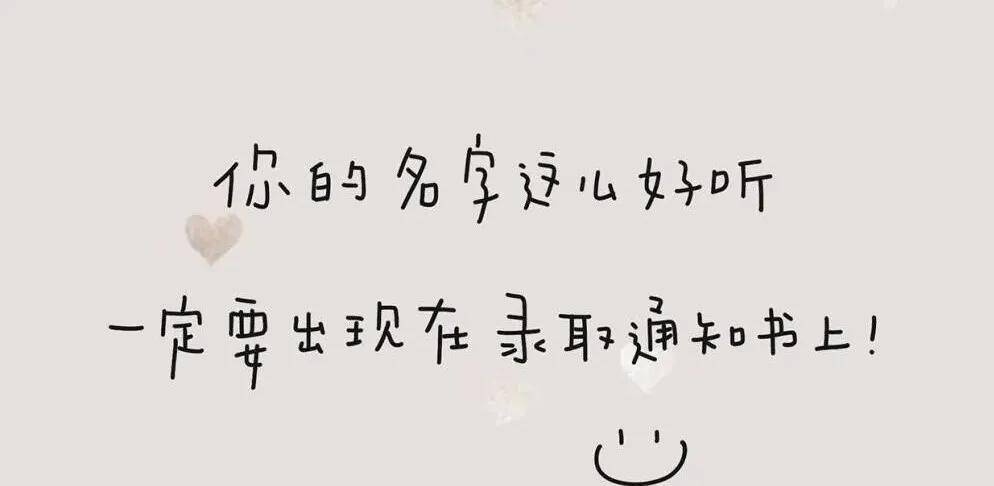 你的名字这么好听
一定要出现在录取通知书上!